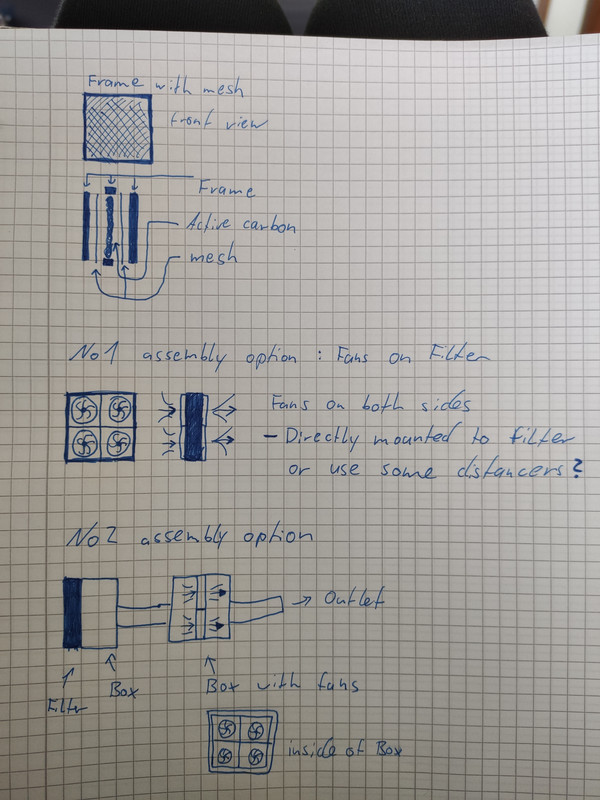 Frame with mesh
front view
Frame
Active carbon
mesh
No1 assembly option : Fans on Filter
Fans on both sides
- Directly mounted to filter
or use some distancers?
No2 assembly option
→ Outlet
Filter
Box
Box with fans
inside of Box